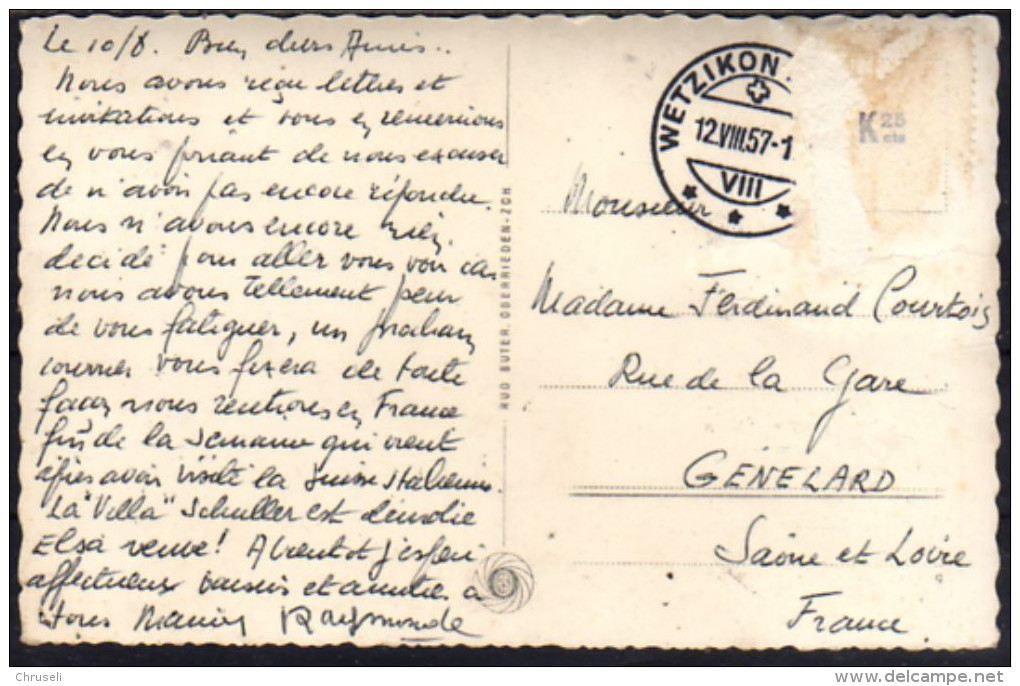 Le 10/8. Bien chers Amis..
Nous avons reçu lettres et
invitations et vous en remercions
en vous priant de nous excuser
de n'avoir pas encore répondu.
Nous n'avons encore rien
décidé pour aller vous voir car
nous avons tellement peur
de vous fatiguer, un
vous fixera de toute
façon nous rentrons en France
fin de la semaine qui vient
après avoir visité la Suisse Italienne.
La "Villa" Schuller est démolie
Elsa veuve! A bientôt j'espère
affectueux baisers et amitié à
tous Raymonde
RUD SUTER, OBERRIEDEN-ZCH
WETZIKON
12.VIII.57-1
VIII
K 25 cts
Monsieur
Madame Ferdinand Courtois
Rue de la Gare
GÉNELARD
Saône et Loire
France
Chruseli
delcampe.net